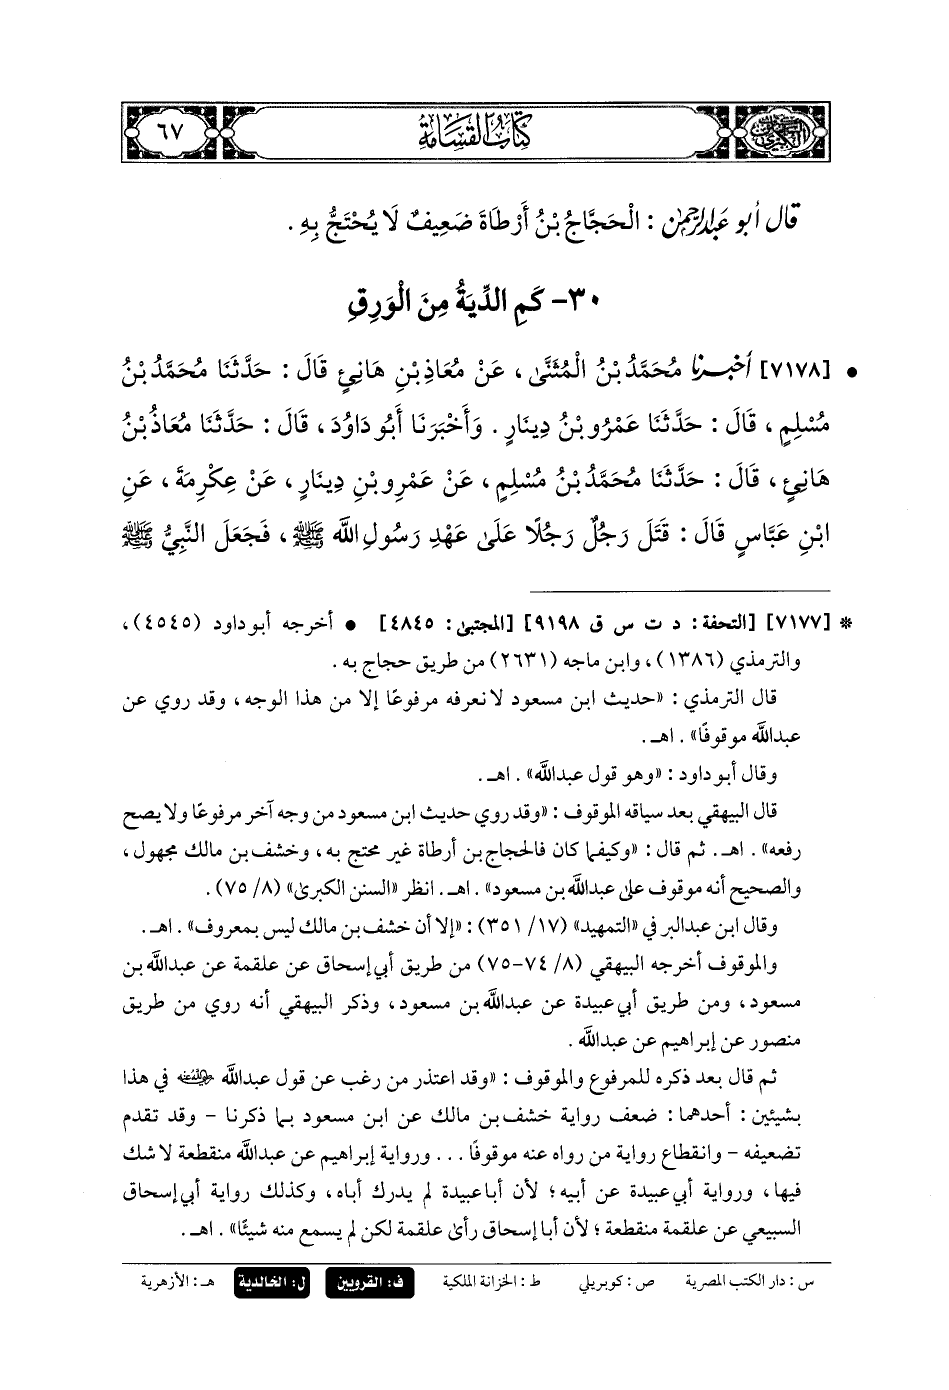 السنن الكبرى
كتاب القسامة
٦٧
قال أبو عبد الرحمن : الْحَجَّاجُ بْنُ أَرْطَاةَ ضَعِيفٌ لَا يُحْتَجُّ بِهِ .
٣٠- كَمِ الدِّيَةُ مِنَ الْوَرِقِ
• [٧١٧٨] أخبرنا مُحَمَّدُ بْنُ الْمُثَنَّى ، عَنْ مُعَاذِ بْنِ هَانِئٍ قَالَ : حَدَّثَنَا مُحَمَّدُ بْنُ
مُسْلِمٍ ، قَالَ : حَدَّثَنَا عَمْرُو بْنُ دِينَارٍ . وَأَخْبَرَنَا أَبُو دَاوُدَ ، قَالَ : حَدَّثَنَا مُعَاذُ بْنُ
هَانِئٍ ، قَالَ : حَدَّثَنَا مُحَمَّدُ بْنُ مُسْلِمٍ ، عَنْ عَمْرِو بْنِ دِينَارٍ ، عَنْ عِكْرِمَةَ ، عَنِ
ابْنِ عَبَّاسٍ قَالَ : قَتَلَ رَجُلٌ رَجُلًا عَلَى عَهْدِ رَسُولِ اللَّه ﷺ ، فَجَعَلَ النَّبِيُّ ﷺ
* [٧١٧٧] [التحفة : د ت س ق ٩١٩٨] [المجتبى : ٤٨٤٥] • أخرجه أبو داود (٤٥٤٥) ،
والترمذي (١٣٨٦) ، وابن ماجه (٢٦٣١) من طريق حجاج به .
قال الترمذي : «حديث ابن مسعود لا نعرفه مرفوعًا إلا من هذا الوجه ، وقد روي عن
عبدالله موقوفًا» . اهـ .
وقال أبو داود : «وهو قول عبدالله» . اهـ .
قال البيهقي بعد سياقه الموقوف : «وقد روي حديث ابن مسعود من وجه آخر مرفوعًا ولا يصح
رفعه» . اهـ . ثم قال : «وكيفما كان فالحجاج بن أرطاة غير محتج به ، وخشف بن مالك مجهول ،
والصحيح أنه موقوف على عبدالله بن مسعود» . اهـ . انظر «السنن الكبرى» (٨/ ٧٥) .
وقال ابن عبدالبر في «التمهيد» (١٧/ ٣٥١) : «إلا أن خشف بن مالك ليس بمعروف» . اهـ .
والموقوف أخرجه البيهقي (٨/ ٧٤-٧٥) من طريق أبي إسحاق عن علقمة عن عبدالله بن
مسعود ، ومن طريق أبي عبيدة عن عبدالله بن مسعود ، وذكر البيهقي أنه روي من طريق
منصور عن إبراهيم عن عبدالله .
ثم قال بعد ذكره للمرفوع والموقوف : «وقد اعتذر من رغب عن قول عبدالله رضي الله عنه في هذا
بشيئين : أحدهما : ضعف رواية خشف بن مالك عن ابن مسعود بما ذكرنا - وقد تقدم
تضعيفه - وانقطاع رواية من رواه عنه موقوفًا . . . ورواية إبراهيم عن عبدالله منقطعة لا شك
فيها ، ورواية أبي عبيدة عن أبيه ؛ لأن أبا عبيدة لم يدرك أباه ، وكذلك رواية أبي إسحاق
السبيعي عن علقمة منقطعة ؛ لأن أبا إسحاق رأى علقمة لكن لم يسمع منه شيئًا» . اهـ .
س : دار الكتب المصرية ص : كوبريلي ط : الخزانة الملكية ف : القرويين ل : الخالدية هـ : الأزهرية